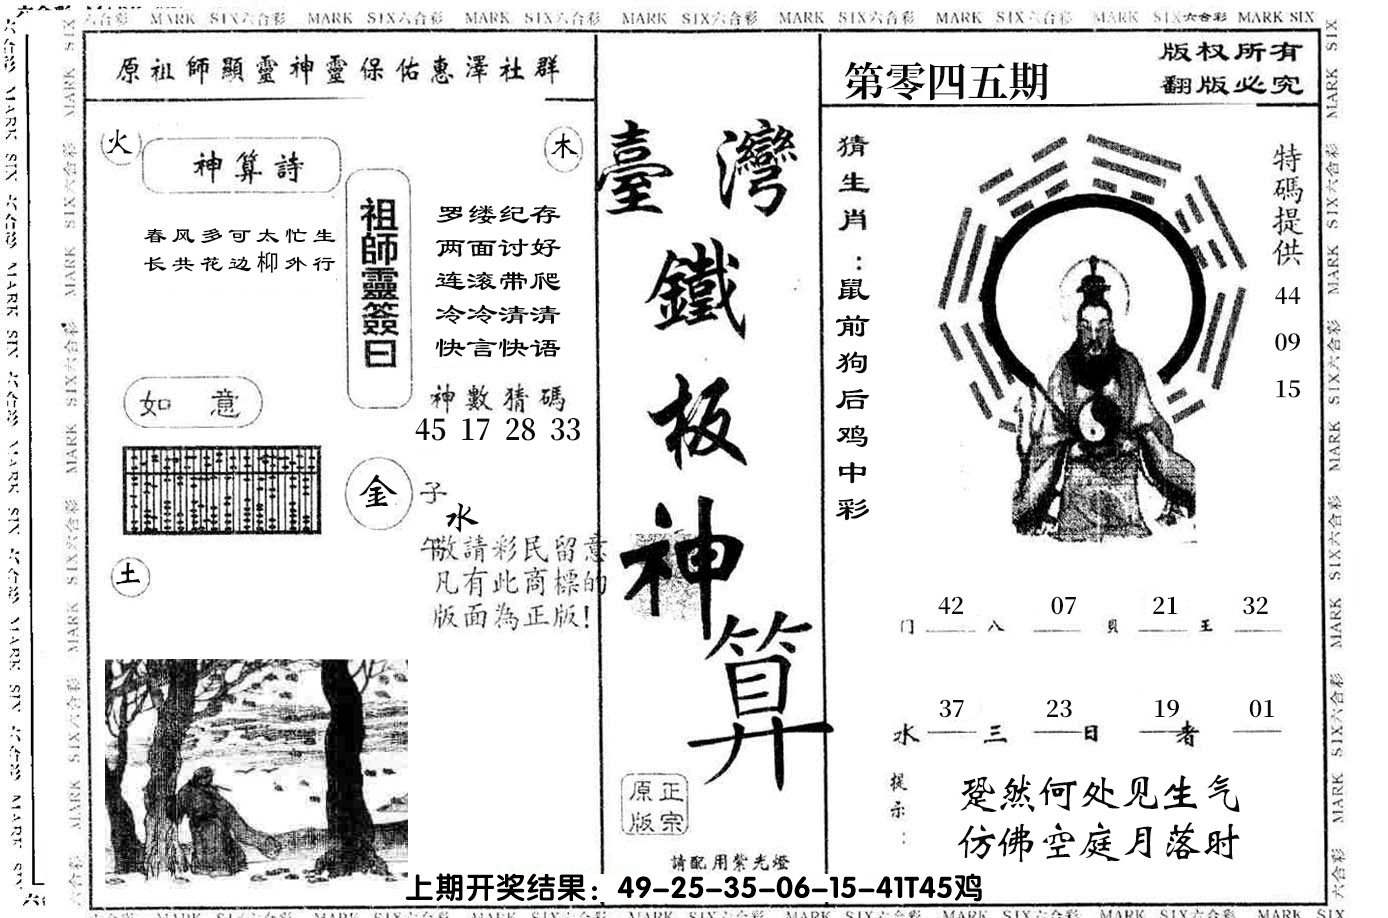 MARK SIX六合彩 MARK SIX六合彩 MARK SIX六合彩 MARK SIX六合彩 MARK SIX六合彩 MARK SIX六合彩 MARK SIX六合彩 MARK SIX
原祖師顯靈神靈保佑惠澤社群
火
神算詩
木
春风多可太忙生
长共花边柳外行
祖師靈簽曰
罗缕纪存
两面讨好
连滚带爬
冷冷清清
快言快语
神數猜碼
45 17 28 33
如意
金
子
水
午
敬請彩民留意
凡有此商標的
版面為正版!
土
臺灣
鐵
板
神
算
正宗
原版
請配用紫光燈
第零四五期
版权所有
翻版必究
猜生肖:鼠前狗后鸡中彩
特碼提供
44
09
15
门 42 八 07 貝 21 王 32
水 37 三 23 日 19 者 01
提示:
跫然何处见生气
仿佛空庭月落时
上期开奖结果：49-25-35-06-15-41T45鸡